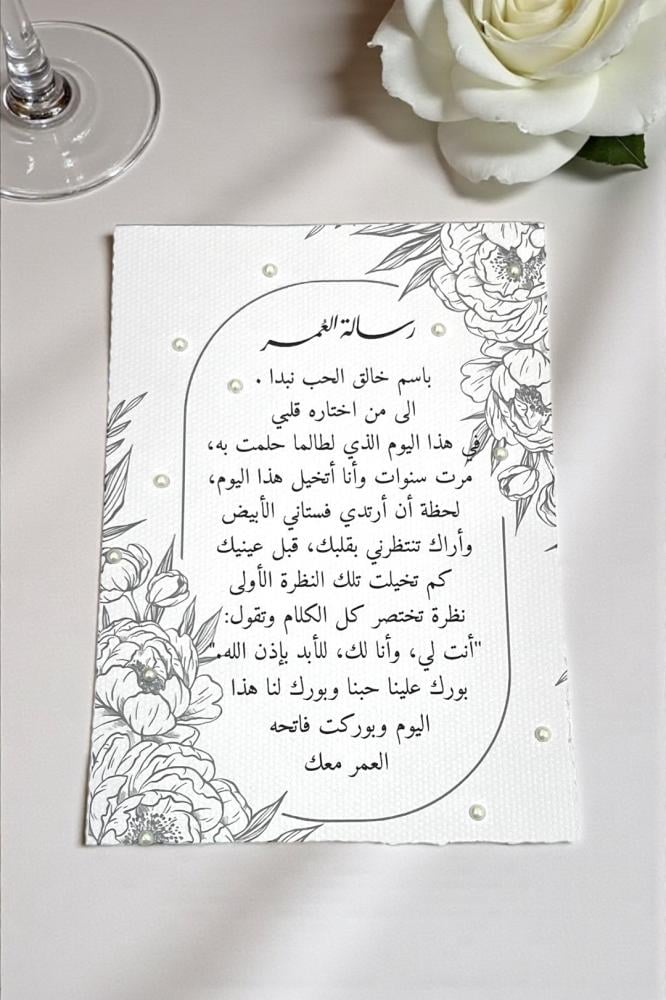 رسالة العُمر
باسم خالق الحب نبدا .
الى من اختاره قلبي
في هذا اليوم الذي لطالما حلمت به،
مَرت سنوات وأنا أتخيل هذا اليوم،
لحظة أن أرتدي فستاني الأبيض
وأراك تنتظرني بقلبك، قبل عينيك
كم تخيلت تلك النظرة الأولى
نظرة تختصر كل الكلام وتقول:
"أنت لي، وأنا لك، للأبد بإذن الله."
بورك علينا حبنا وبورك لنا هذا
اليوم وبوركت فاتحه
العمر معك